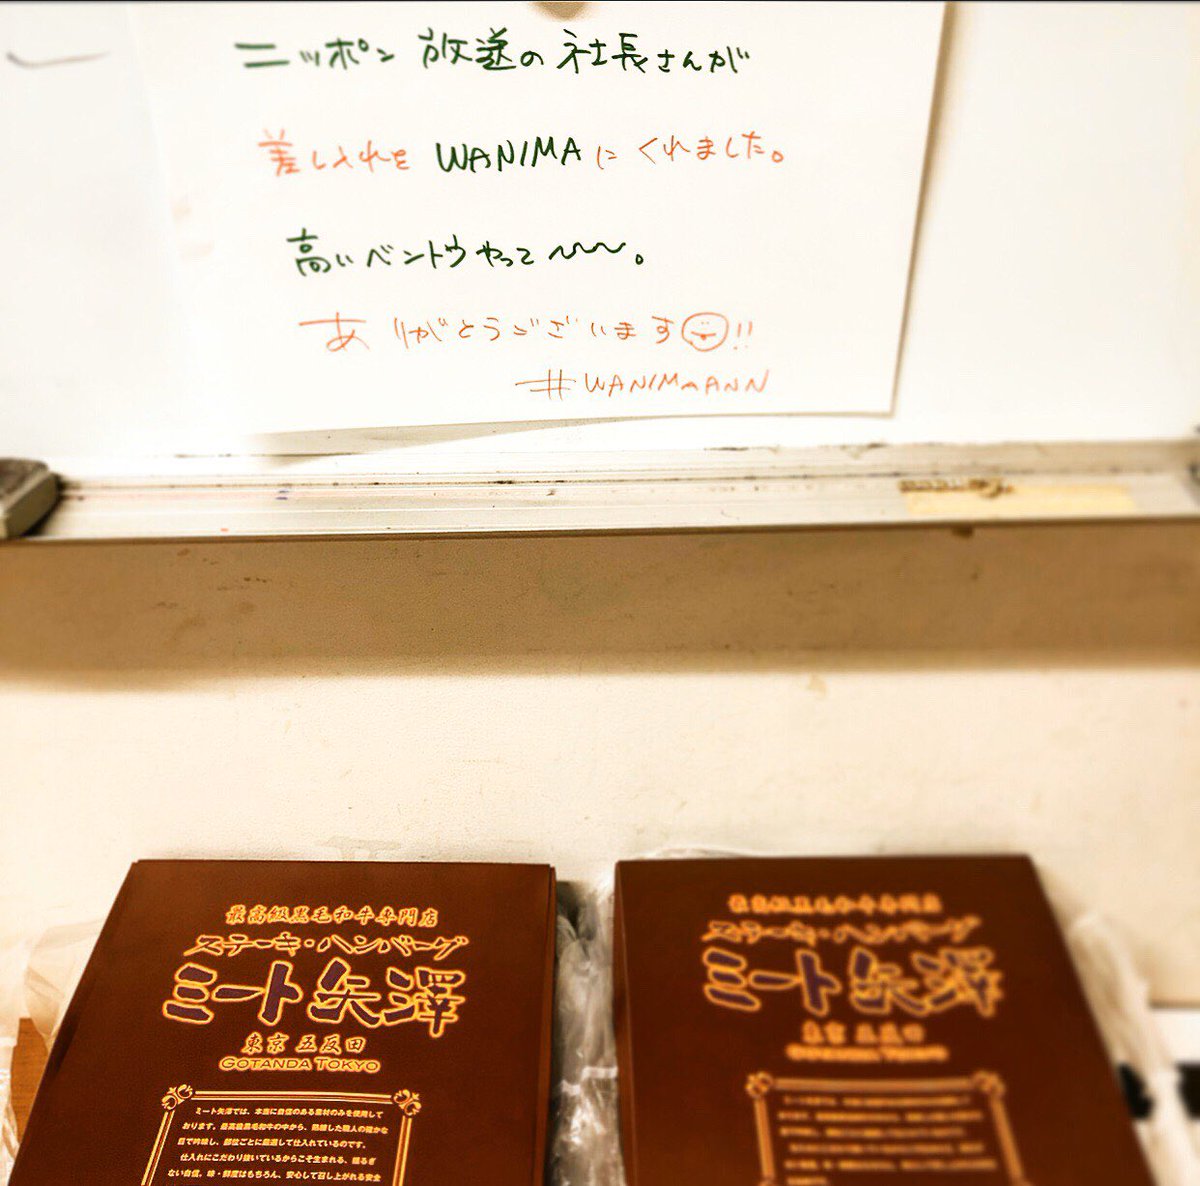 ニッポン放送の社長さんが
差し入れを WANIMA に くれました。
高いベントウやって〜〜〜。
ありがとうございます!!
#WANIMAANN
最高級黒毛和牛専門店
ステーキ・ハンバーグ
ミート矢澤
東京 五反田
GOTANDA TOKYO
ミート矢澤では、本当に自信のある素材のみを使用して
おります。最高級黒毛和牛の中から、熟練した職人の確かな
目で吟味し、部位ごとに厳選して仕入れているのです。
仕入れにこだわり抜いているからこそ生まれる、揺るぎ
ない自信。味・鮮度はもちろん、安心して召し上がれる安全
最高級黒毛和牛専門店
ステーキ・ハンバーグ
ミート矢澤
東京 五反田
GOTANDA TOKYO